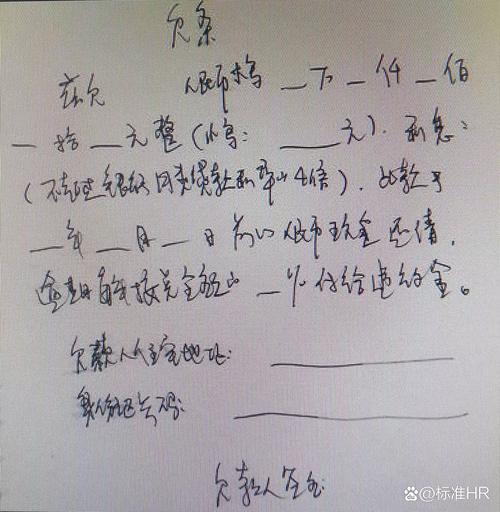 欠条
兹欠 人民币大写 __万__仟__佰
__拾__元整(小写: ____元). 利息:
(不超过银行同类贷款利率的4倍). 此款于
__年__月__日前以人民币现金还清.
逾期每天按总金额的__%付给违约金。
欠款人住宅地址: ____
身份证号码: ____
欠款人签名
@标准HR